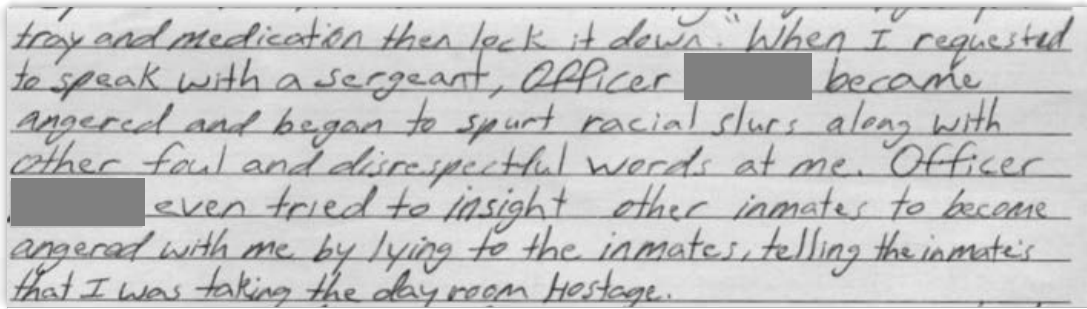 tray and medication then lock it down." When I requested
to speak with a sergeant, Officer became
angered and began to spurt racial slurs along with
other foul and disrespectful words at me. Officer
even tried to insight other inmates to become
angered with me by lying to the inmates, telling the inmate's
that I was taking the day room Hostage.